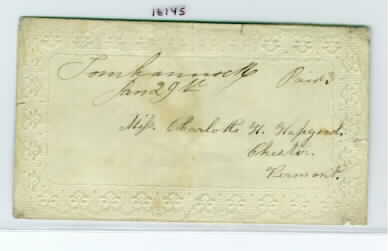 16145
Tomhannock Paid 3
Jan 29th
Miss. Charlotte H. Hapgood.
Chester.
Vermont.